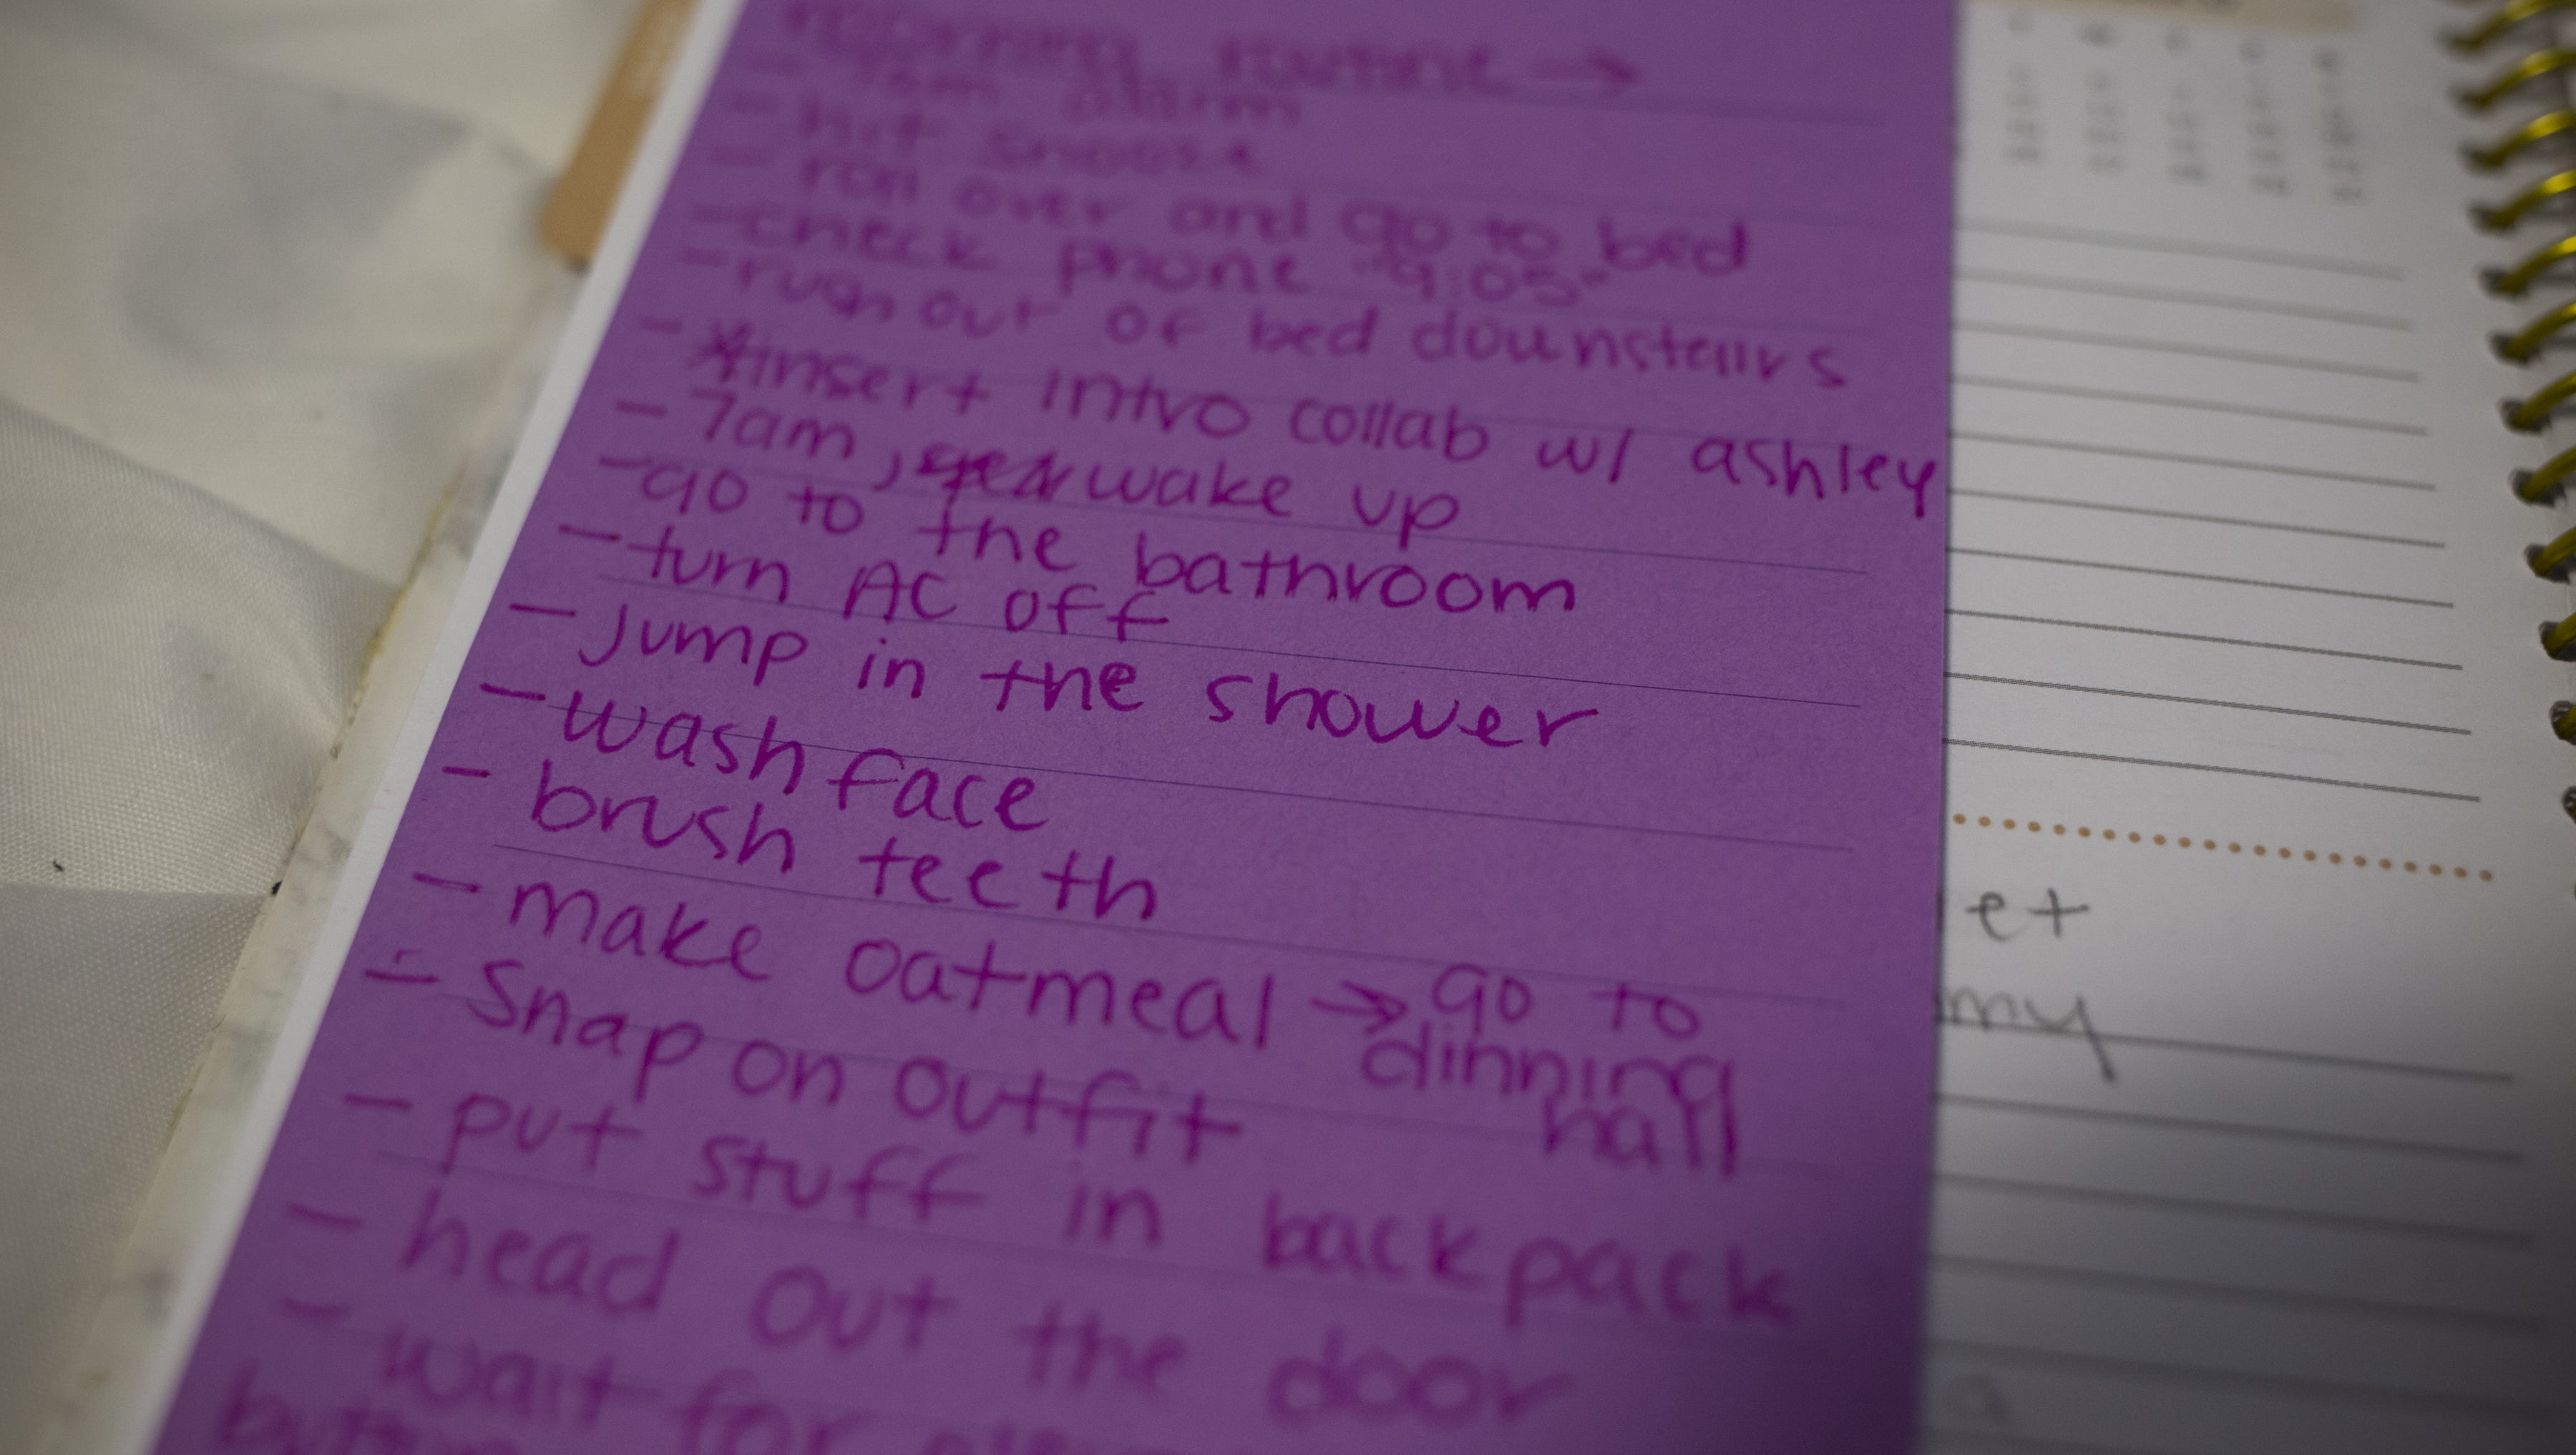 morning routine →
- 7am alarm
- hit snooze
- roll over and go to bed
- check phone "9:05"
- rush out of bed downstairs
- *insert intro collab w/ ashley
- 7am, wake up
- go to the bathroom
- turn AC off
- jump in the shower
- wash face
- brush teeth
- make oatmeal → go to
dinning
hall
- snap on outfit
- put stuff in backpack
- head out the door
- wait for
et
my